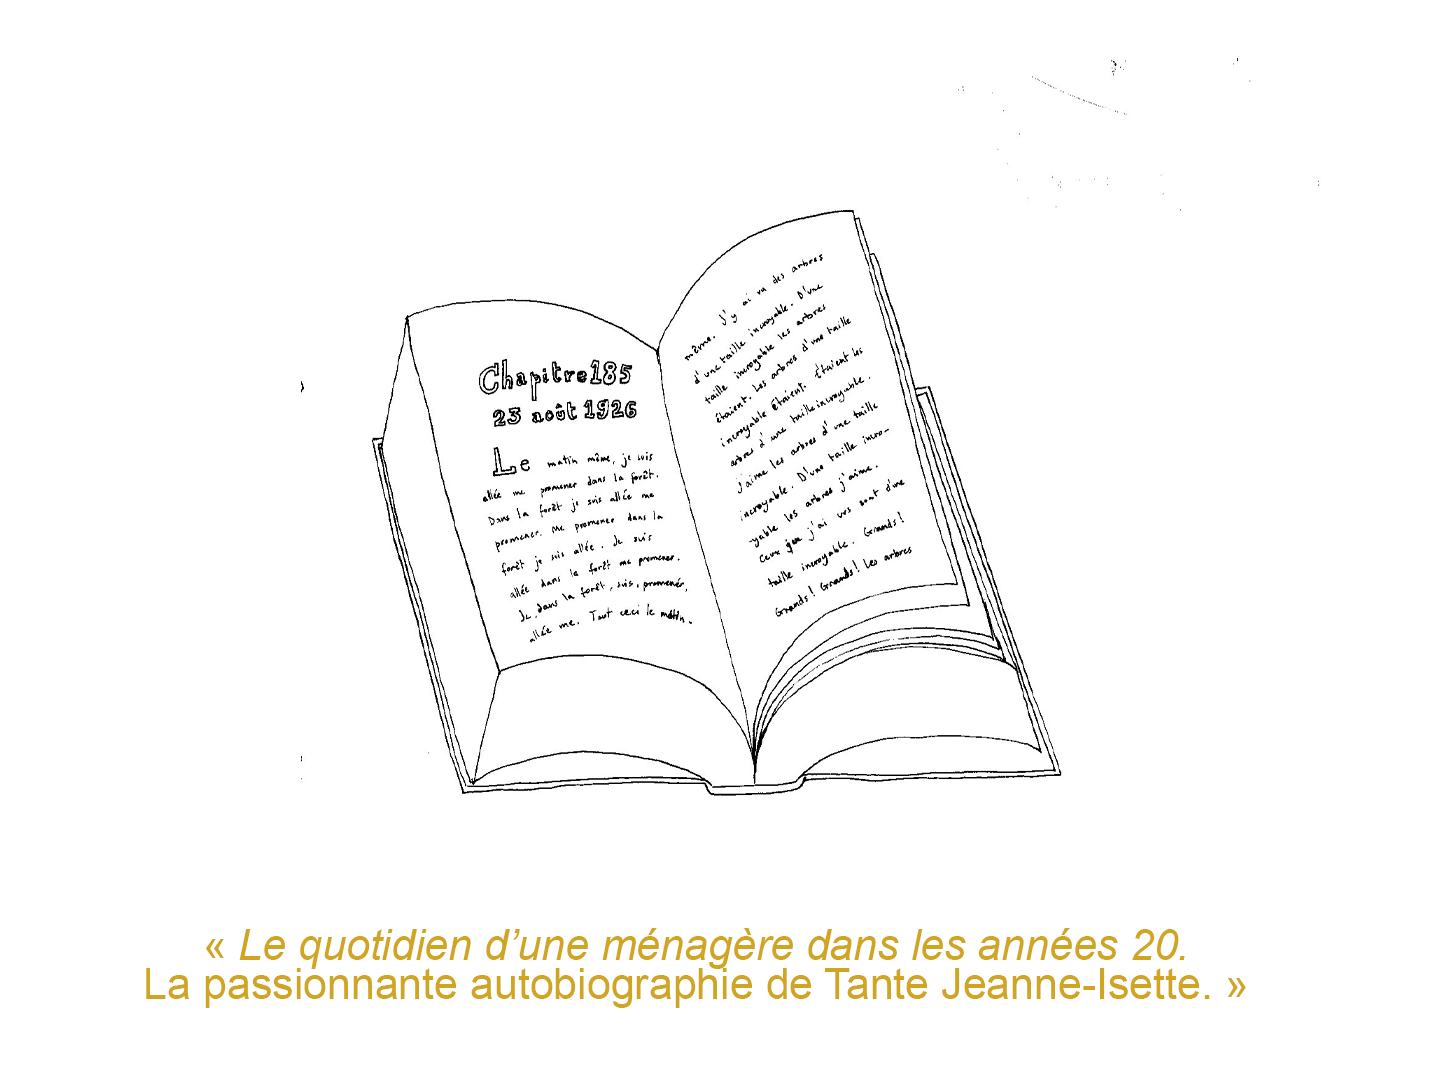 Chapitre 185
23 août 1926
Le matin même, je suis
allée me promener dans la forêt.
Dans la forêt je suis allée me
promener. Me promener dans la
forêt je suis allée. Je suis
allée dans la forêt me promener.
Je, dans la forêt, suis, promener,
allée me. Tout ceci le matin-
même. J'y ai vu des arbres
d'une taille incroyable. D'une
taille incroyable les arbres
étaient. Les arbres d'une taille
incroyable étaient. Étaient les
arbres d'une taille incroyable.
J'aime les arbres d'une taille
incroyable. D'une taille incro-
yable les arbres j'aime.
Ceux j'ai vus sont d'une
taille incroyable. Grands!
Grands! Grands! Les arbres
« Le quotidien d’une ménagère dans les années 20.
La passionnante autobiographie de Tante Jeanne-Isette. »